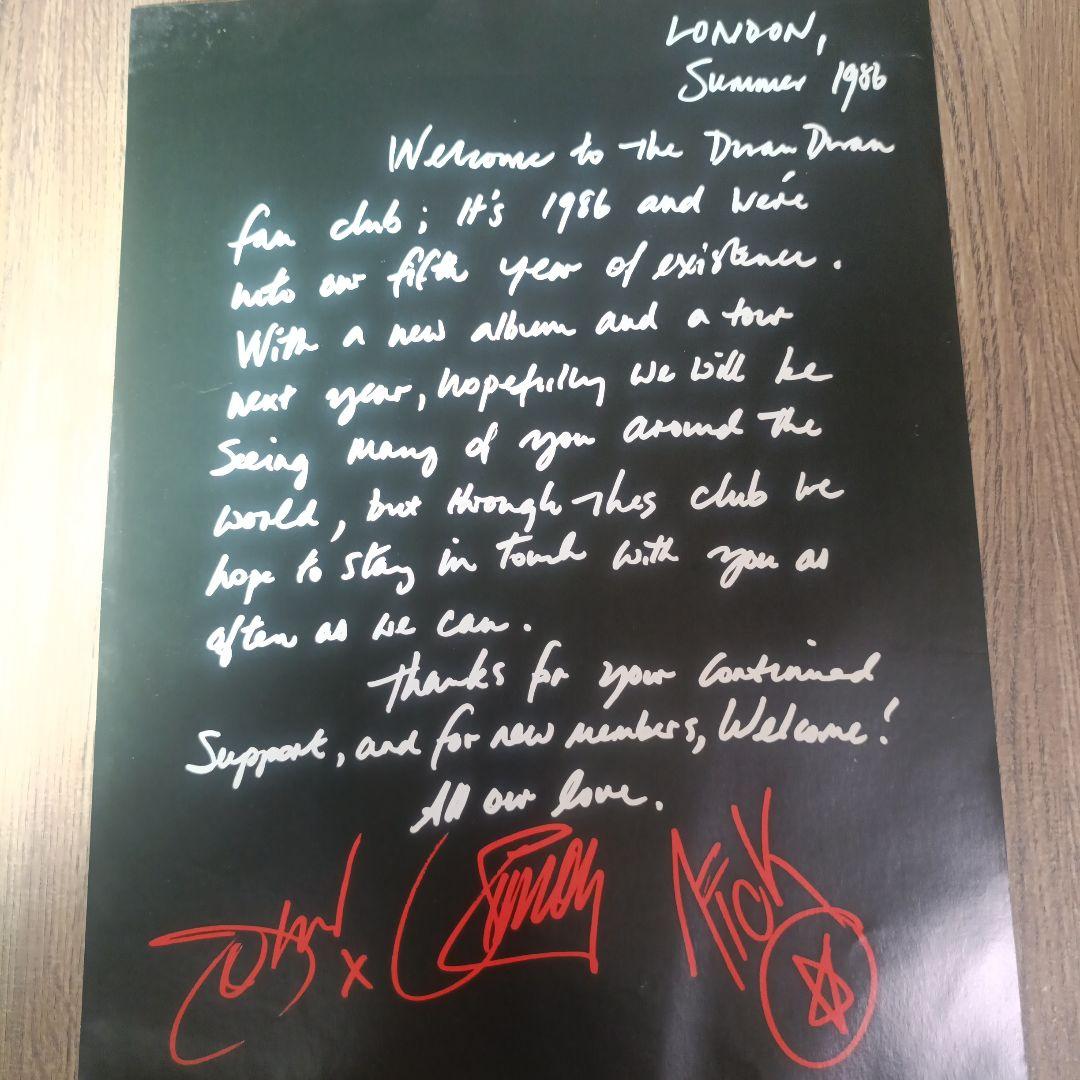 LONDON,
Summer 1986
Welcome to the Duran Duran
fan club; It's 1986 and we're
into our fifth year of existence.
With a new album and a tour
next year, hopefully we will be
Seeing many of you around the
world, but through this club we
hope to stay in touch with you as
often as we can.
Thanks for your continued
Support, and for new members, Welcome!
All our love.
John x Simon Nick